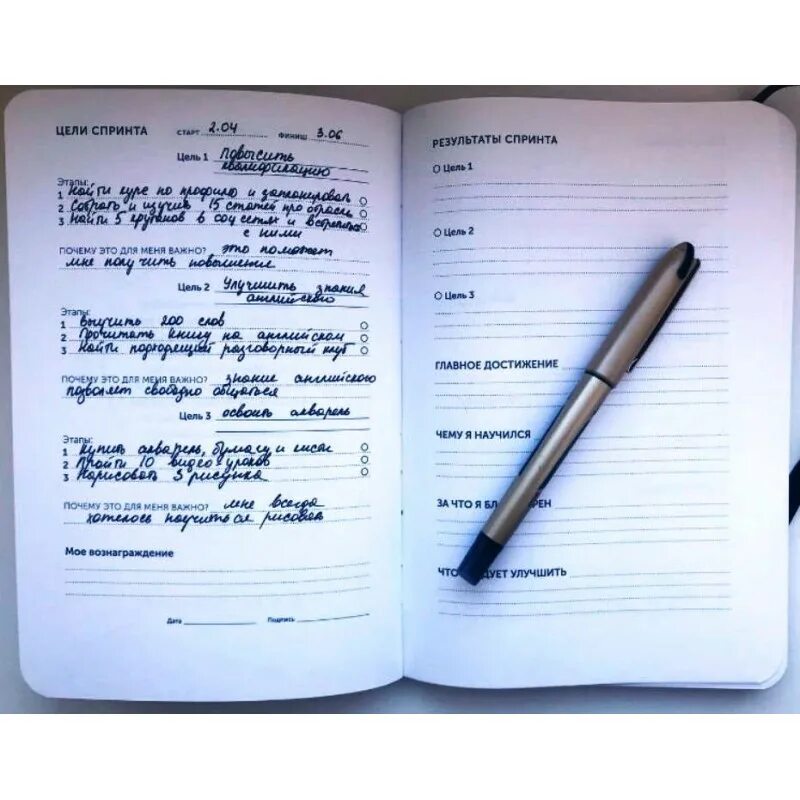 ЦЕЛИ СПРИНТА СТАРТ 2.04 ФИНИШ 3.06
Цель 1 Повысить
квалификацию
Этапы:
1 Найти курс по профилю и
2 Собрать и изучить 15 статей про отрасль
3 Найти 5 в соц сетях и
с ними
ПОЧЕМУ ЭТО ДЛЯ МЕНЯ ВАЖНО? это поможет
мне получить повышение
Цель 2 Улучшить знания
английского
Этапы:
1 Выучить 200 слов
2 Прочитать книгу на английском
3 Найти подходящий разговорный клуб
ПОЧЕМУ ЭТО ДЛЯ МЕНЯ ВАЖНО? знание английского
позволяет свободно общаться
Цель 3 освоить акварель
Этапы:
1 Купить акварель, бумагу и кисти
2 Пройти 10 видео уроков
3 Нарисовать 5 рисунка
ПОЧЕМУ ЭТО ДЛЯ МЕНЯ ВАЖНО? мне всегда
хотелось научиться рисовать
Мое вознаграждение
Дата Подпись
РЕЗУЛЬТАТЫ СПРИНТА
Цель 1
Цель 2
Цель 3
ГЛАВНОЕ ДОСТИЖЕНИЕ
ЧЕМУ Я НАУЧИЛСЯ
ЗА ЧТО Я
УЛУЧШИТЬ